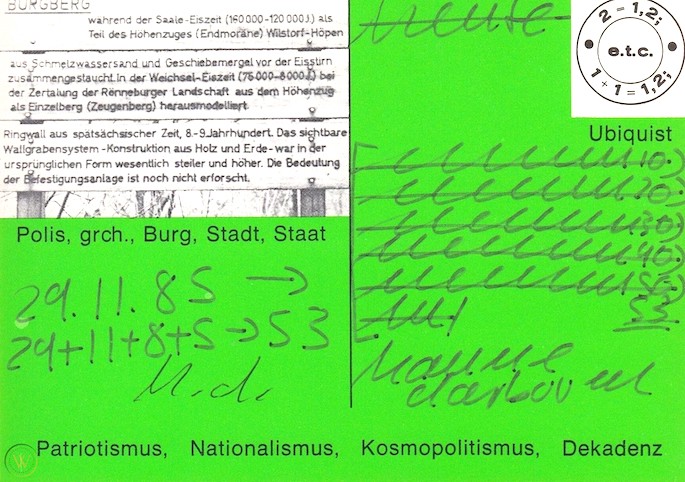 BURGBERG
während der Saale-Eiszeit (160 000-120 000 J.) als
Teil des Höhenzuges (Endmoräne) Wilstorf-Höpen
aus Schmelzwassersand und Geschiebemergel vor der Eisstirn
zusammengestaucht. In der Weichsel-Eiszeit (75 000-8 000 J.) bei
der Zertalung der Rönneburger Landschaft aus dem Höhenzug
als Einzelberg (Zeugenberg) herausmodelliert.
Ringwall aus spätsächsischer Zeit, 8.-9. Jahrhundert. Das sichtbare
Wallgrabensystem - Konstruktion aus Holz und Erde - war in der
ursprünglichen Form wesentlich steiler und höher. Die Bedeutung
der Befestigungsanlage ist noch nicht erforscht.
Polis, grch., Burg, Stadt, Staat
29.11.85 →
29+11+8+5→53
M.d.
heute
2 = 1,2;
e.t.c.
1 + 1 = 1,2;
Ubiquist
10)
20)
30)
40)
50)
53
hanne
darboven
Patriotismus, Nationalismus, Kosmopolitismus, Dekadenz